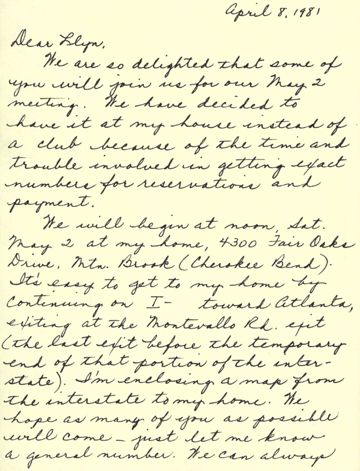 April 8, 1981
Dear Glyn,
We are so delighted that some of
you will join us for our May 2
meeting. We have decided to
have it at my house instead of
a club because of the time and
trouble involved in getting exact
numbers for reservations and
payment.
We will begin at noon, Sat.
May 2 at my home, 4300 Fair Oaks
Drive, Mtn. Brook (Cherokee Bend).
It's easy to get to my home by
continuing on I- toward Atlanta,
exiting at the Montevallo Rd. exit
(the last exit before the temporary
end of that portion of the inter-
state). I'm enclosing a map from
the interstate to my home. We
hope as many of you as possible
will come - just let me know
a general number. We can always